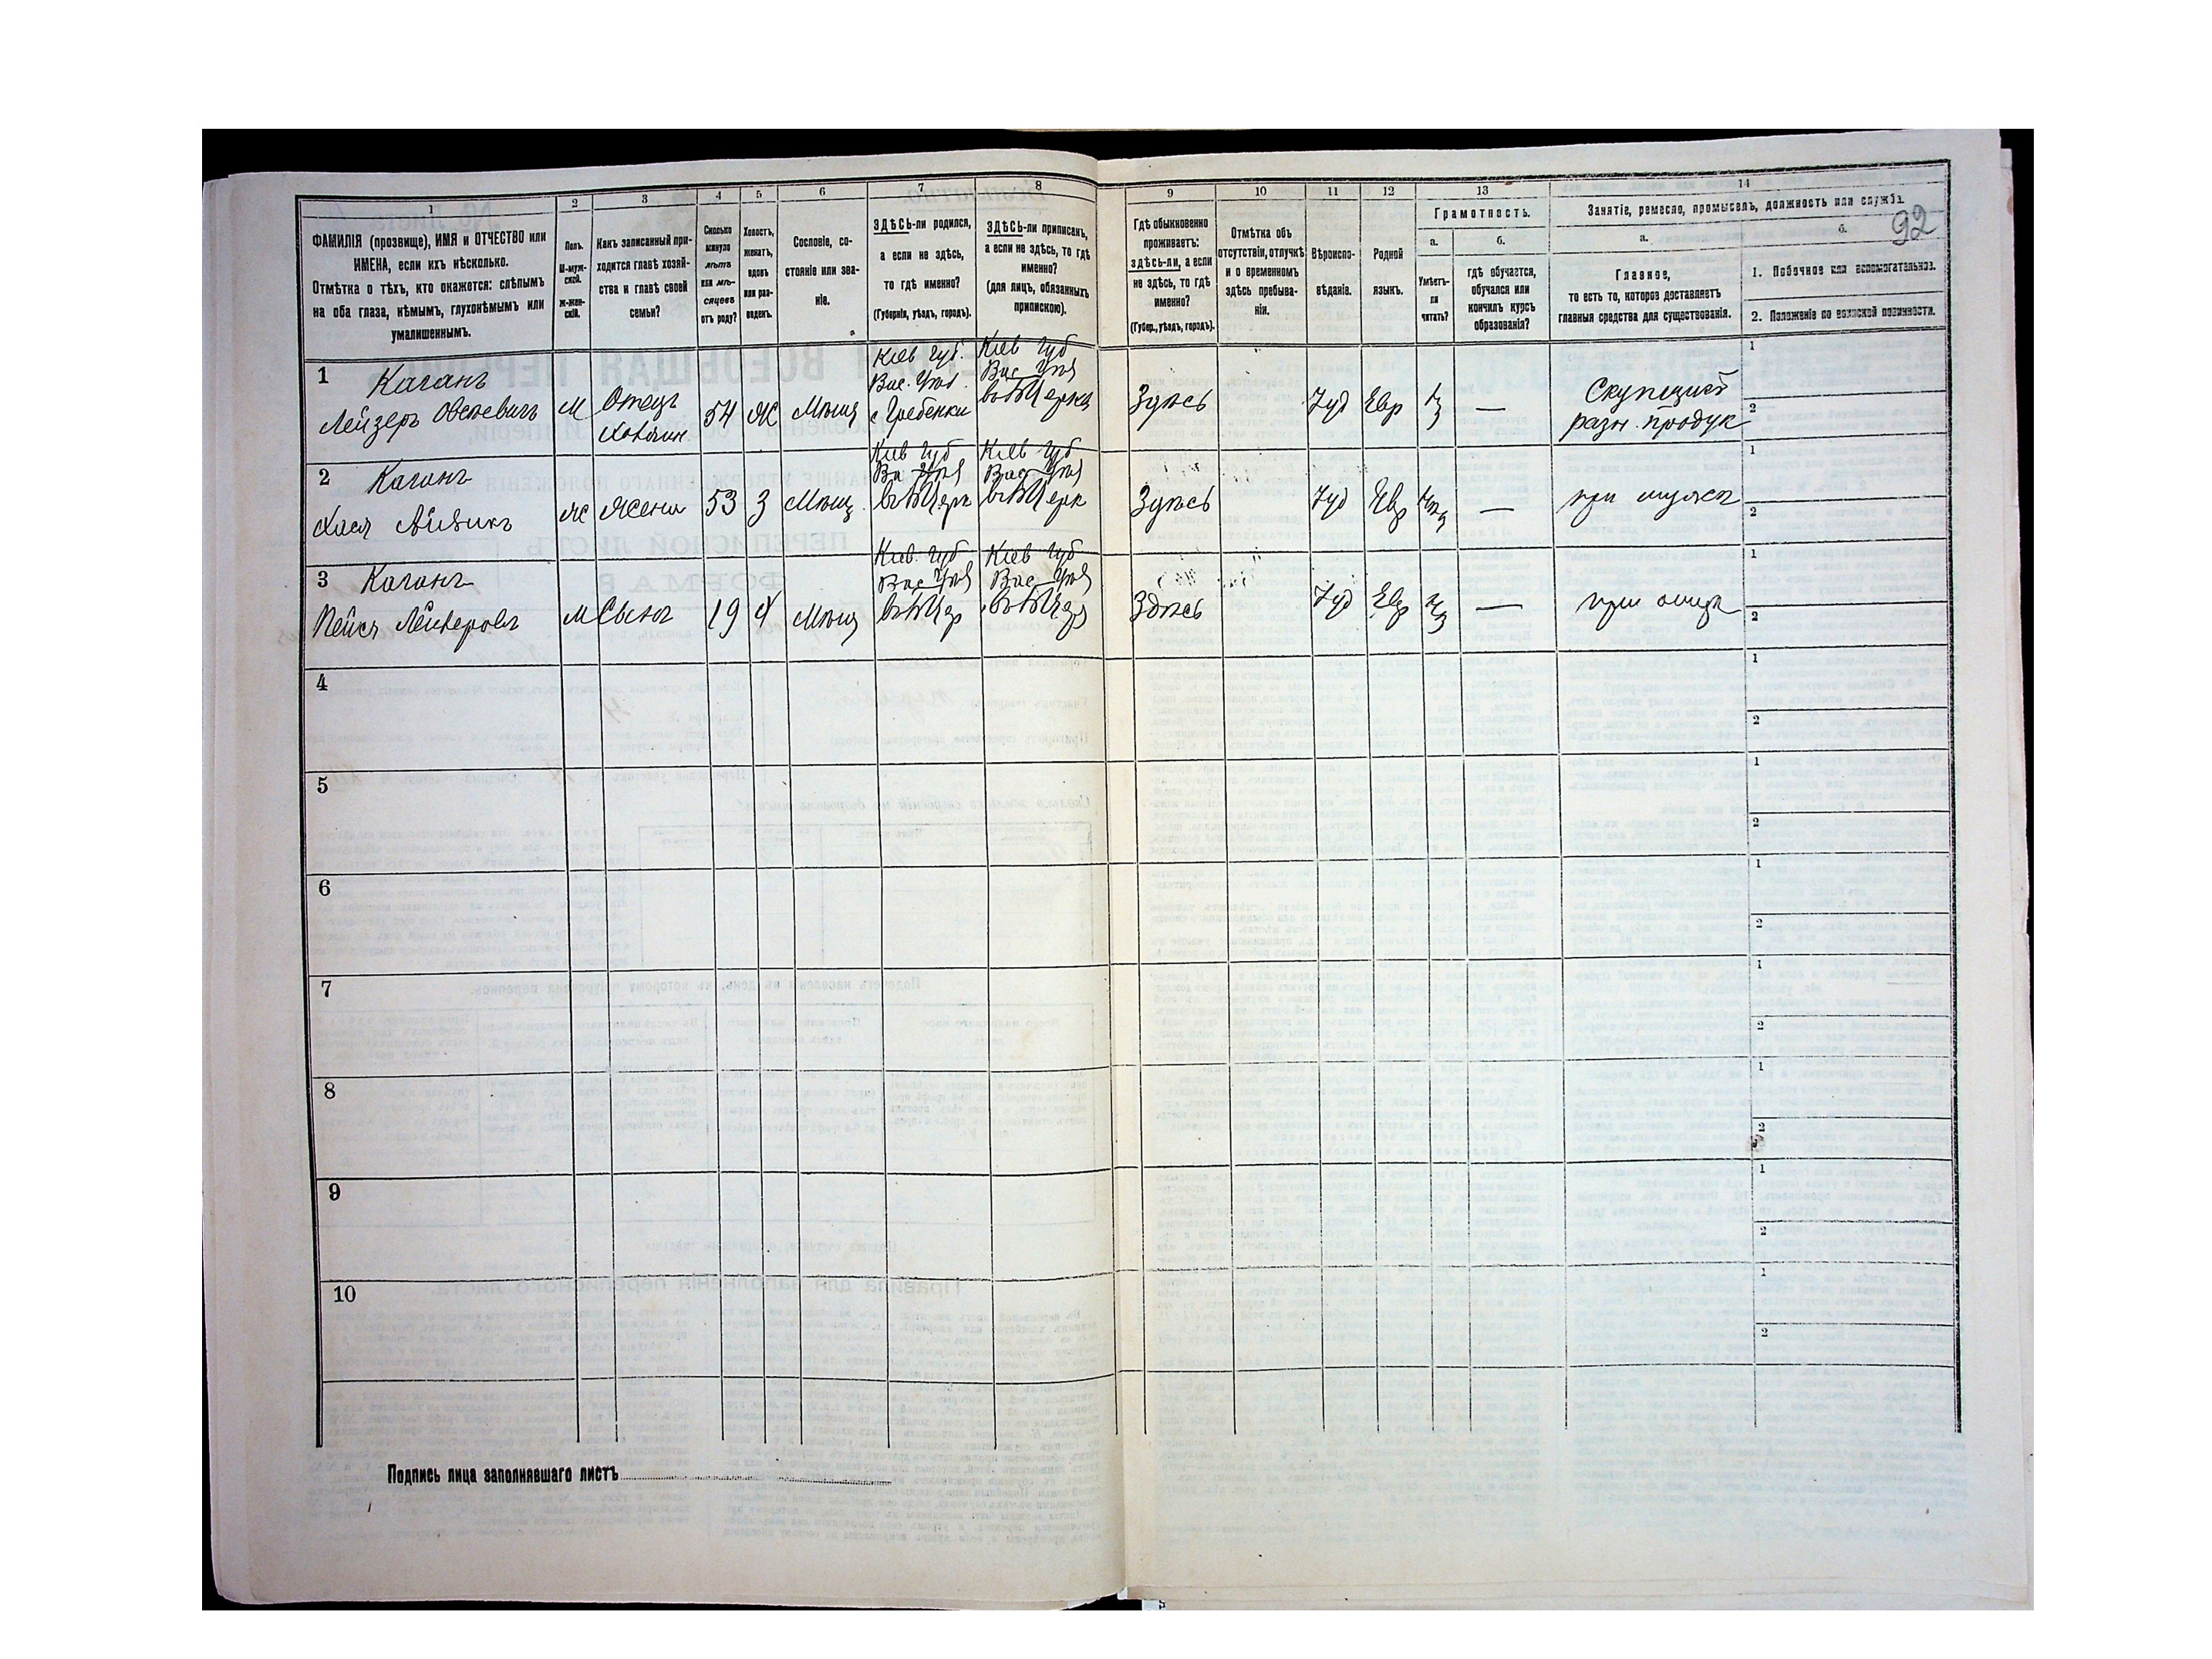 1 2 3 4 5 6 7 8 9 10 11 12 13 14
92
ФАМИЛІЯ (прозвище), ИМЯ и ОТЧЕСТВО или ИМЕНА, если ихъ нѣсколько.
Отмѣтка о тѣхъ, кто окажется: слѣпымъ на оба глаза, нѣмымъ, глухонѣмымъ или умалишеннымъ.
Полъ.
М-муж-
ской.
Ж-жен-
скій.
Какъ записанный при-
ходится главѣ хозяй-
ства и главѣ своей
семьи?
Сколько
минуло
лѣтъ
или мѣ-
сяцевъ
отъ роду?
Холостъ,
женатъ,
вдовъ
или раз-
веденъ.
Сословіе, со-
стояніе или зва-
ніе.
ЗДѢСЬ-ли родился,
а если не здѣсь,
то гдѣ именно?
(Губернія, уѣздъ, городъ).
ЗДѢСЬ-ли приписанъ,
а если не здѣсь, то гдѣ
именно?
(для лицъ, обязанныхъ
припискою).
Гдѣ обыкновенно
проживаетъ:
здѣсь-ли, а если
не здѣсь, то гдѣ
именно?
(Губер., уѣздъ, городъ).
Отмѣтка объ
отсутствіи, отлучкѣ
и о временномъ
здѣсь пребыва-
ніи.
Вѣроиспо-
вѣданіе.
Родной
языкъ.
Грамотность.
а.
Умѣетъ-
ли
читать?
б.
гдѣ обучается,
обучался или
кончилъ курсъ
образованія?
Занятіе, ремесло, промыселъ, должность или служба.
а.
Главное,
то есть то, которое доставляетъ
главныя средства для существованія.
б.
1. Побочное или вспомогательное.
2. Положеніе по воинской повинности.
1 Каганъ
Лейзеръ
М
Отецъ
Хозяин
54
Ж
Мѣщ
Кіев Губ.
Вас. Уѣз.
с Гребенки
Кіев Губ
Вас Уѣз
Здѣсь
Іуд
Евр
—
Скупщикъ
разн. продук
1
2
2 Каганъ
Хася
Ж
Жена
53
З
Мѣщ.
Кіев Губ
Ва Уѣз
Кіев Губ
Вас Уѣз
Здѣсь
Іуд
Евр
—
при мужѣ
1
2
3 Каганъ
Пейся Лейзеровъ
М
Сынъ
19
Х
Мѣщ
Кіев. Губ
Вас Уѣз
Кіев Губ
Вас Уѣз
Здѣсь
Іуд
Евр
—
при отцѣ
1
2
4
1
2
5
1
2
6
1
2
7
1
2
8
1
2
9
1
2
10
1
2
Подпись лица заполнявшаго листъ